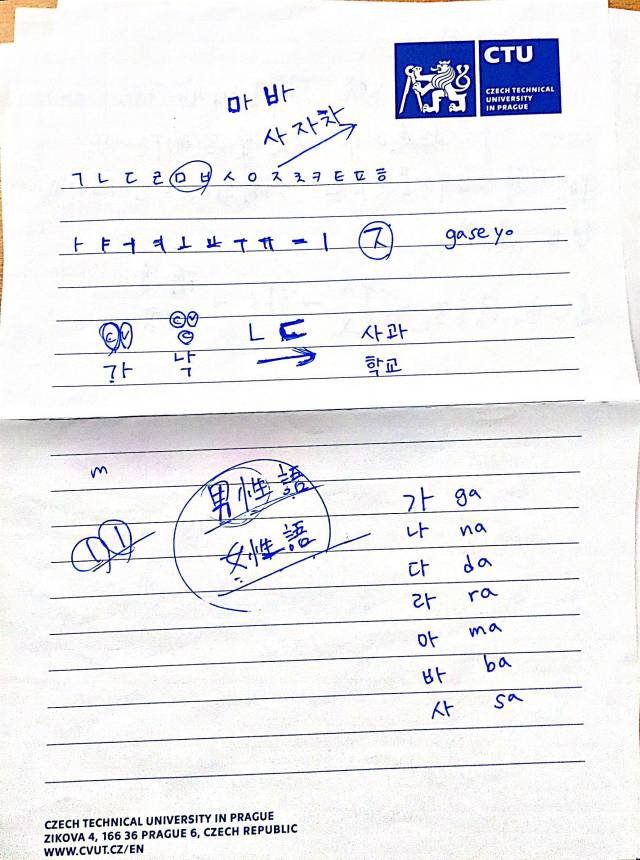 CTU
CZECH TECHNICAL
UNIVERSITY
IN PRAGUE
마 바
사자차
ㄱ ㄴ ㄷ ㄹ ㅁ ㅂ ㅅ ㅇ ㅈ ㅊ ㅋ ㅌ ㅍ ㅎ
ㅏ ㅑ ㅓ ㅕ ㅗ ㅛ ㅜ ㅠ ㅡ ㅣ ㅈ gaseyo
C V
C V
C
ㄴ ㄷ
사과
가 낙
학교
m
男性語
女性語
가 ga
나 na
다 da
라 ra
마 ma
바 ba
사 sa
CZECH TECHNICAL UNIVERSITY IN PRAGUE
ZIKOVA 4, 166 36 PRAGUE 6, CZECH REPUBLIC
WWW.CVUT.CZ/EN